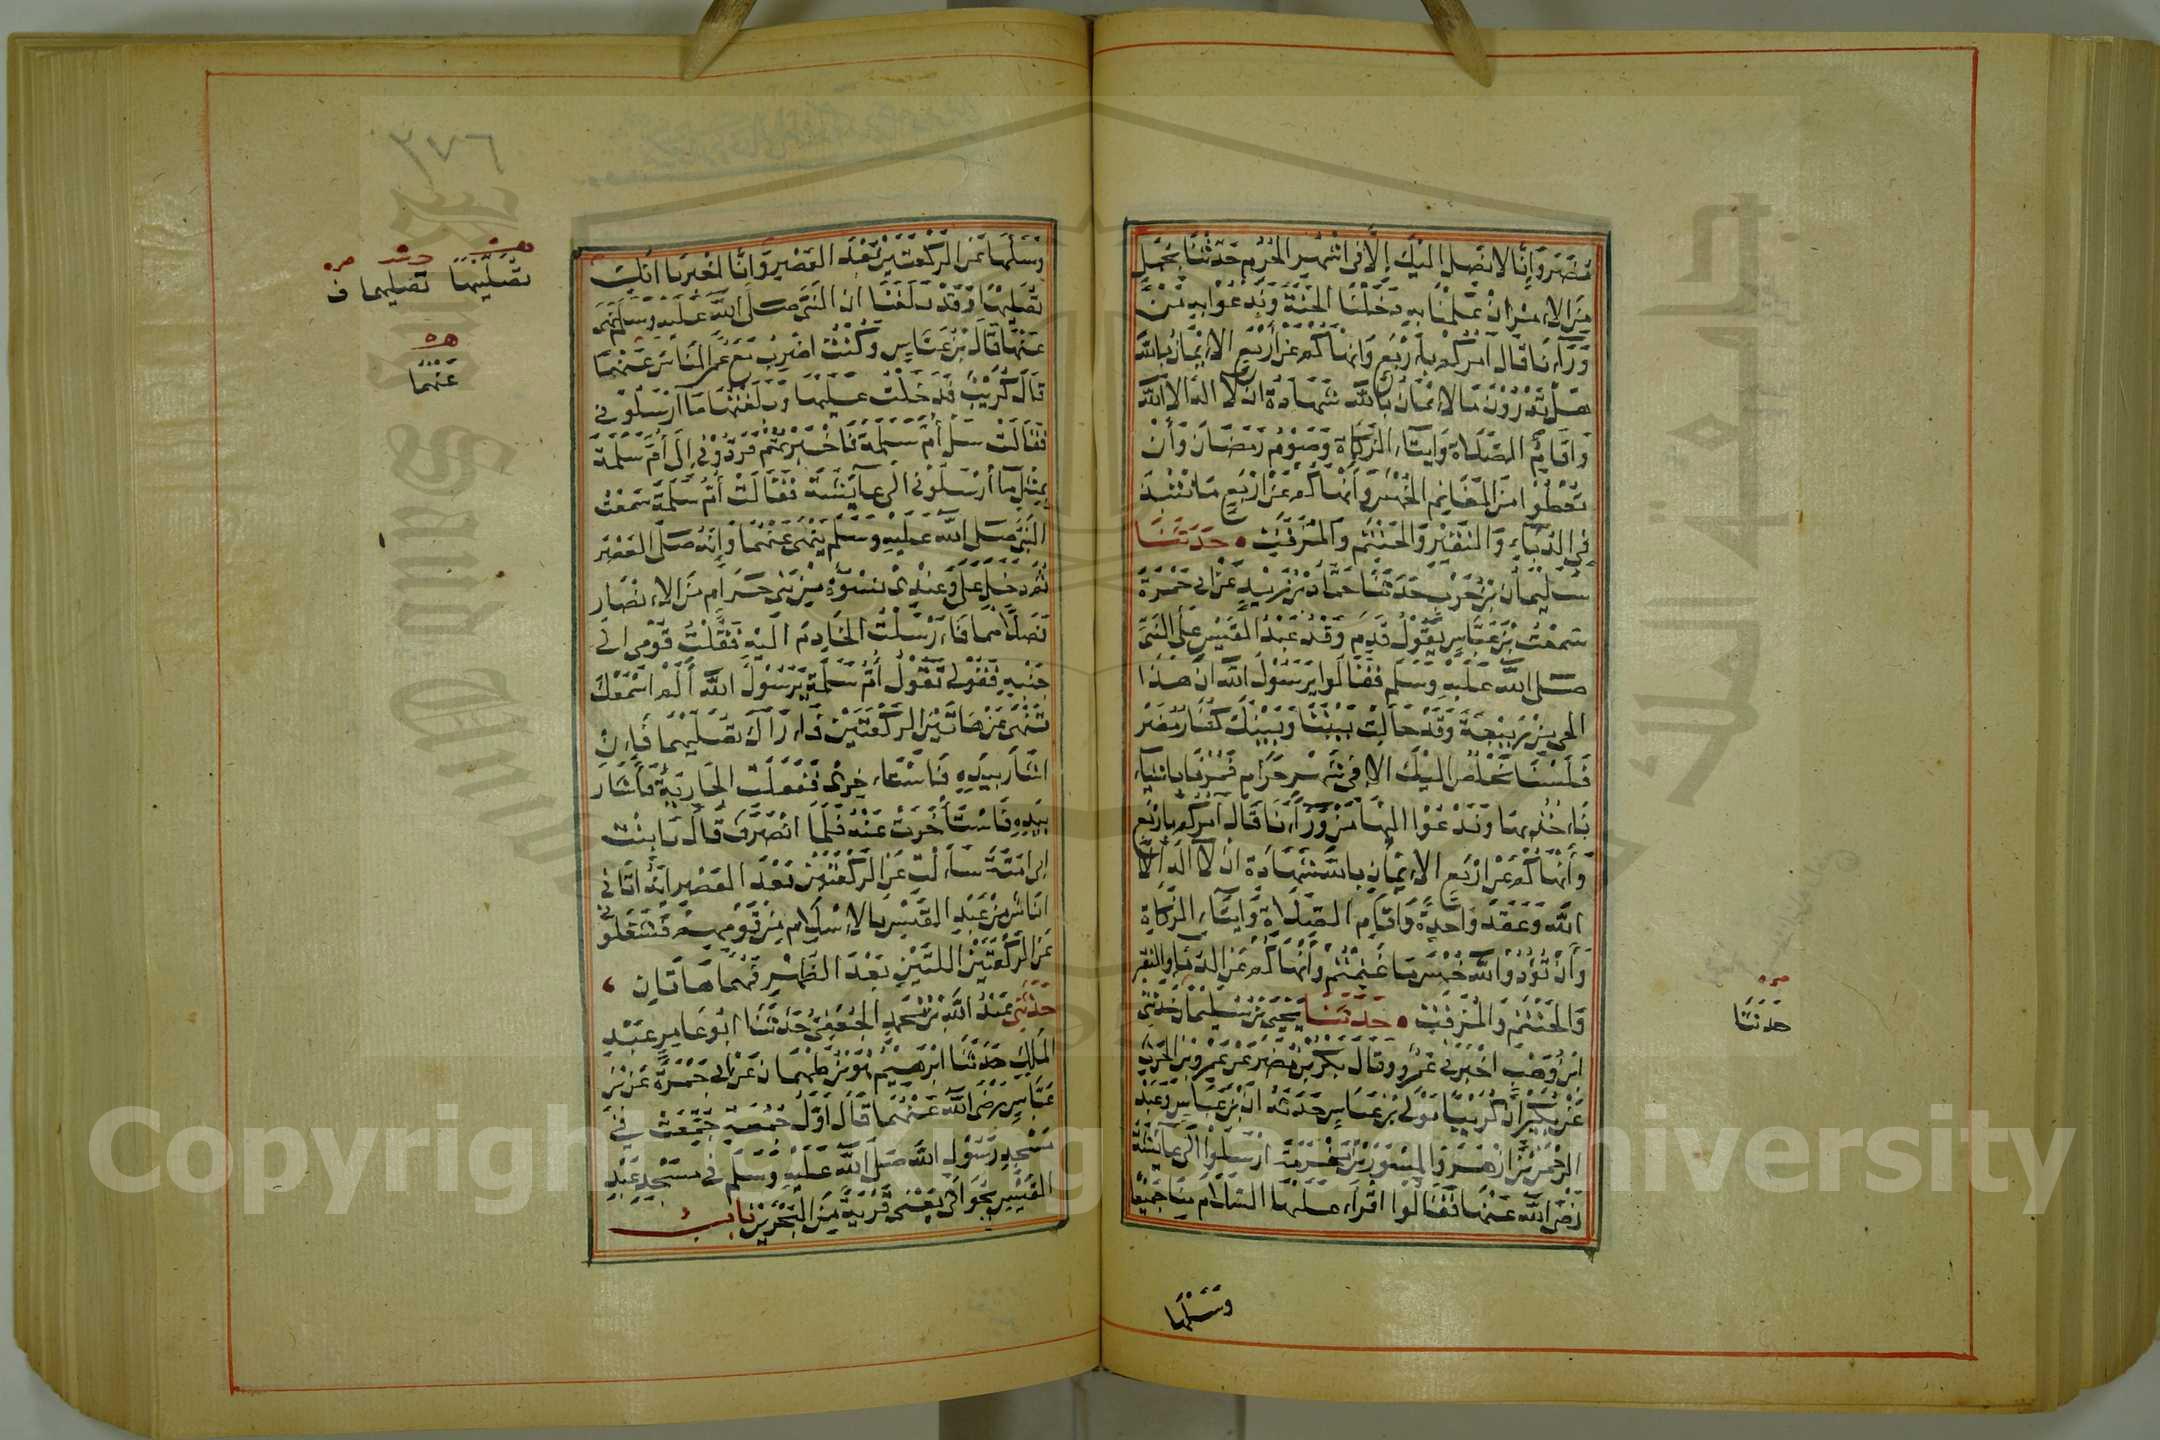 مُضَرَ وَإِنَّا لَا نَصِلُ إِلَيْكَ إِلَّا فِي أَشْهُرِ الْحُرُمِ حَدِّثْنَا بِجُمَلٍ
مِنَ الْأَمْرِ إِنْ عَمِلْنَا بِهِ دَخَلْنَا الْجَنَّةَ وَنَدْعُوا بِهِ مَنْ
وَرَاءَنَا قَالَ آمُرُكُمْ بِأَرْبَعٍ وَأَنْهَاكُمْ عَنْ أَرْبَعٍ الْإِيمَانُ بِاللَّهِ
هَلْ تَدْرُونَ مَا الْإِيمَانُ بِاللَّهِ شَهَادَةُ أَنْ لَا إِلَهَ إِلَّا اللَّهُ
وَإِقَامُ الصَّلَاةِ وَإِيتَاءُ الزَّكَاةِ وَصَوْمُ رَمَضَانَ وَأَنْ
تُعْطُوا مِنَ الْمَغَانِمِ الْخُمُسَ وَأَنْهَاكُمْ عَنْ أَرْبَعٍ مَا انْتُبِذَ
فِي الدُّبَّاءِ وَالنَّقِيرِ وَالْحَنْتَمِ وَالْمُزَفَّتِ • حَدَّثَنَا
سُلَيْمَانُ بْنُ حَرْبٍ حَدَّثَنَا حَمَّادُ بْنُ زَيْدٍ عَنْ أَبِي جَمْرَةَ
سَمِعْتُ بْنَ عَبَّاسٍ يَقُولُ قَدِمَ وَفْدُ عَبْدِ الْقَيْسِ عَلَى النَّبِيِّ
صَلَّى اللَّهُ عَلَيْهِ وَسَلَّمَ فَقَالُوا يَرَسُولَ اللَّهِ إِنَّ هَذَا
الْحَيَّ مِنْ رَبِيعَةَ وَقَدْ حَالَتْ بَيْنَنَا وَبَيْنَكَ كُفَّارُ مُضَرَ
فَلَسْنَا نَخْلُصُ إِلَيْكَ إِلَّا فِي شَهْرٍ حَرَامٍ فَمُرْنَا بِأَشْيَاءَ
نَأْخُذُ بِهَا وَنَدْعُوا إِلَيْهَا مَنْ وَرَاءَنَا قَالَ آمُرُكُمْ بِأَرْبَعٍ
وَأَنْهَاكُمْ عَنْ أَرْبَعٍ الْإِيمَانِ بِاللَّهِ شَهَادَةِ أَنْ لَا إِلَهَ إِلَّا
اللَّهُ وَعَقَدَ وَاحِدَةً وَإِقَامِ الصَّلَاةِ وَإِيتَاءِ الزَّكَاةِ
وَأَنْ تُؤَدُّوا لِلَّهِ خُمُسَ مَا غَنِمْتُمْ وَأَنْهَاكُمْ عَنِ الدُّبَّاءِ وَالنَّقِيرِ
وَالْحَنْتَمِ وَالْمُزَفَّتِ • حَدَّثَنَا يَحْيَى بْنُ سُلَيْمَانَ حَدَّثَنِي
ابْنُ وَهْبٍ أَخْبَرَنِي عَمْرٌو وَقَالَ بَكْرُ بْنُ مُضَرَ عَنْ عَمْرِو بْنِ الْحَرْثِ
عَنْ بُكَيْرٍ أَنَّ كُرَيْبًا مَوْلَى بْنِ عَبَّاسٍ حَدَّثَهُ أَنَّ بْنَ عَبَّاسٍ وَعَبْدَ
الرَّحْمَنِ بْنَ أَزْهَرَ وَالْمِسْوَرَ بْنَ مَخْرَمَةَ أَرْسَلُوا إِلَى عَائِشَةَ
رَضِيَ اللَّهُ عَنْهَا فَقَالُوا اقْرَأْ عَلَيْهَا السَّلَامَ مِنَّا جَمِيعًا
حَدَّثَنَا
وَسَلْهَا
٢٧٦
وَسَلْهَا عَنِ الرَّكْعَتَيْنِ بَعْدَ الْعَصْرِ وَإِنَّا أُخْبِرْنَا أَنَّكِ
تُصَلِّيهَا وَقَدْ بَلَغَنَا أَنَّ النَّبِيَّ صَلَّى اللَّهُ عَلَيْهِ وَسَلَّمَ نَهَى
عَنْهَا قَالَ بْنُ عَبَّاسٍ وَكُنْتُ أَضْرِبُ مَعَ عُمَرَ النَّاسَ عَنْهُمَا
قَالَ كُرَيْبٌ فَدَخَلْتُ عَلَيْهَا وَبَلَّغْتُهَا مَا أَرْسَلُونِي
فَقَالَتْ سَلْ أُمَّ سَلَمَةَ فَأَخْبَرْتُهُمْ فَرَدُّونِي إِلَى أُمِّ سَلَمَةَ
بِمِثْلِ مَا أَرْسَلُونِي إِلَى عَائِشَةَ فَقَالَتْ أُمُّ سَلَمَةَ سَمِعْتُ
النَّبِيَّ صَلَّى اللَّهُ عَلَيْهِ وَسَلَّمَ يَنْهَى عَنْهُمَا وَإِنَّهُ صَلَّى الْعَصْرَ
ثُمَّ دَخَلَ عَلَيَّ وَعِنْدِي نِسْوَةٌ مِنْ بَنِي حَرَامٍ مِنَ الْأَنْصَارِ
فَصَلَّاهُمَا فَأَرْسَلْتُ الْخَادِمَ إِلَيْهِ فَقُلْتُ قُومِي إِلَى
جَنْبِهِ فَقُولِي تَقُولُ أُمُّ سَلَمَةَ يَرَسُولَ اللَّهِ أَلَمْ أَسْمَعْكَ
تَنْهَى عَنْ هَاتَيْنِ الرَّكْعَتَيْنِ فَأَرَاكَ تُصَلِّيهِمَا فَإِنْ
أَشَارَ بِيَدِهِ فَاسْتَأْخِرِي فَفَعَلَتِ الْجَارِيَةُ فَأَشَارَ
بِيَدِهِ فَاسْتَأْخَرَتْ عَنْهُ فَلَمَّا انْصَرَفَ قَالَ يَا بِنْتَ
أَبِي أُمَيَّةَ سَأَلْتِ عَنِ الرَّكْعَتَيْنِ بَعْدَ الْعَصْرِ إِنَّهُ أَتَانِي
أُنَاسٌ مِنْ عَبْدِ الْقَيْسِ بِالْإِسْلَامِ مِنْ قَوْمِهِمْ فَشَغَلُونِي
عَنِ الرَّكْعَتَيْنِ اللَّتَيْنِ بَعْدَ الظُّهْرِ فَهُمَا هَاتَانِ
حَدَّثَنِي عَبْدُ اللَّهِ بْنُ مُحَمَّدٍ الْجُعْفِيُّ حَدَّثَنَا أَبُو عَامِرٍ عَبْدُ
الْمَلِكِ حَدَّثَنَا إِبْرَاهِيمُ هُوَ بْنُ طَهْمَانَ عَنْ أَبِي جَمْرَةَ عَنْ بْنِ
عَبَّاسٍ رَضِيَ اللَّهُ عَنْهُمَا قَالَ أَوَّلُ جُمُعَةٍ جُمِّعَتْ فِي
مَسْجِدِ رَسُولِ اللَّهِ صَلَّى اللَّهُ عَلَيْهِ وَسَلَّمَ فِي مَسْجِدِ عَبْدِ
الْقَيْسِ بِجُوَاثَى يَعْنِي قَرْيَةً مِنَ الْبَحْرَيْنِ بَابُ
تُصَلِّينَهَا تصليهما
عَنْهُمَا
Copyright © King Saud University